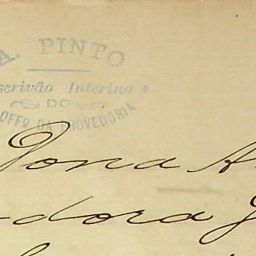 A. PINTO
scrivão Interino
DO
OFFº DA PROVEDORIA
Dona A
dora